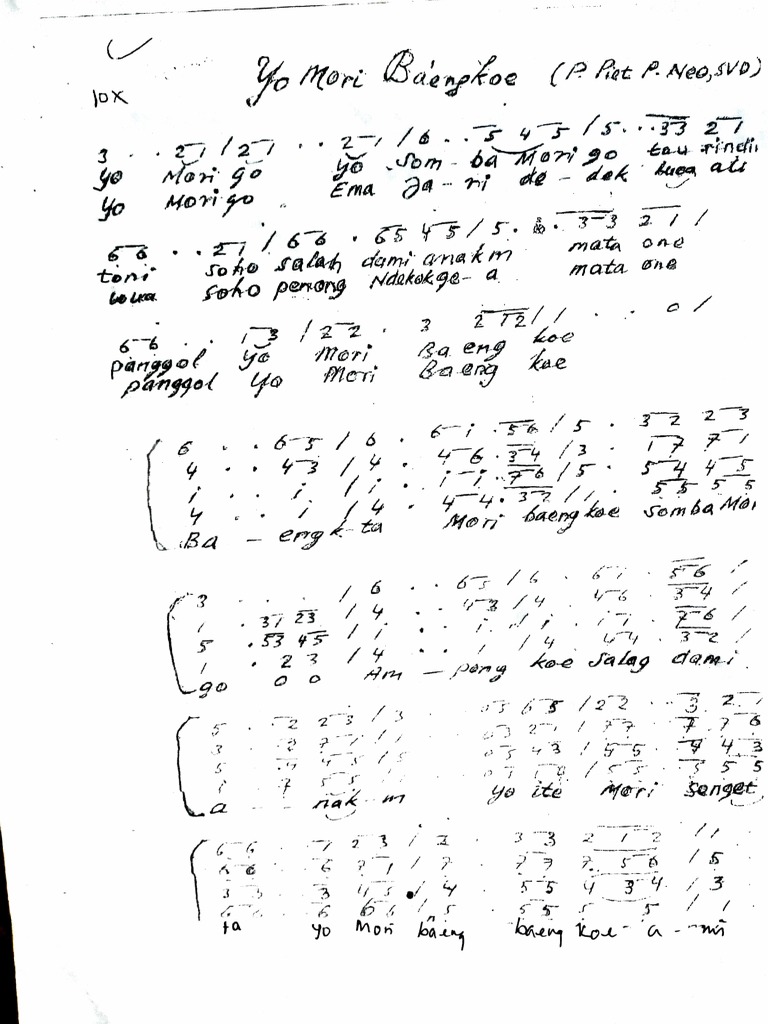 Yo Mori Baengkoe (P. Piet P. Neo, SVD)
10X
3 . . 2 1 / 2 1 . . 2 1 / 6 . . 5 4 5 / 5 . . . 3 3 2 1
Yo Mori go yo Som - ba Mori go tau rindii
Yo Mori go Ema Ja - ri de - dek buga ati
6 6 . . 2 1 / 6 6 . 6 5 4 5 / 5 . . 3 3 2 1 /
toni soho salah dami anakm mata one
soho penong Ndekokge - a mata one
6 6 . . 1 3 / 2 2 . 3 2 1 2 / 1 . . 0 /
panggol yo Mori Ba eng koe
panggol Yo Mori Baeng koe
6 . . 6 5 / 6 . 6 i . 5 6 / 5 . 3 2 2 3
4 . . 4 3 / 4 . 4 6 . 3 4 / 3 . 1 7 7 1
i . . i / i . i i . 7 6 / 5 . 5 4 4 5
4 . . i / 4 . 4 4 . 3 2 / 1 . 5 5 5 5
Ba - engk - ta Mori baengkoe Somba Mori
3 . . . / 6 . . 6 5 / 6 . 6 i . 5 6 /
1 . 3 1 2 3 / 4 . . 4 3 / 4 . 4 6 . 3 4 /
5 . 5 3 4 5 / i . . i / i . i i . 7 6 /
1 . 2 3 / 4 . . i / 4 . 4 4 . 3 2 /
go 0 0 Am - pong koe Salag dami
5 . 2 2 3 / 3 . 0 3 6 5 / 2 2 . . 3 2 1
3 . 7 7 1 / 1 . 0 3 2 1 / 7 7 . 7 7 6
5 . 4 4 5 / 5 . 0 5 4 3 / 5 5 . 4 4 3
a - nak m yo ite Mori senget
6 6 . 1 2 3 / 2 . 3 3 2 1 2 / 1
6 6 6 7 1 / 7 . 7 7 7 5 6 / 5
3 3 3 4 5 / 4 . 5 5 4 3 4 / 3
6 6 6 6 6 / 5 . 5 5 5 5 / 1
ta yo Mori baeng baeng koe - a - mi